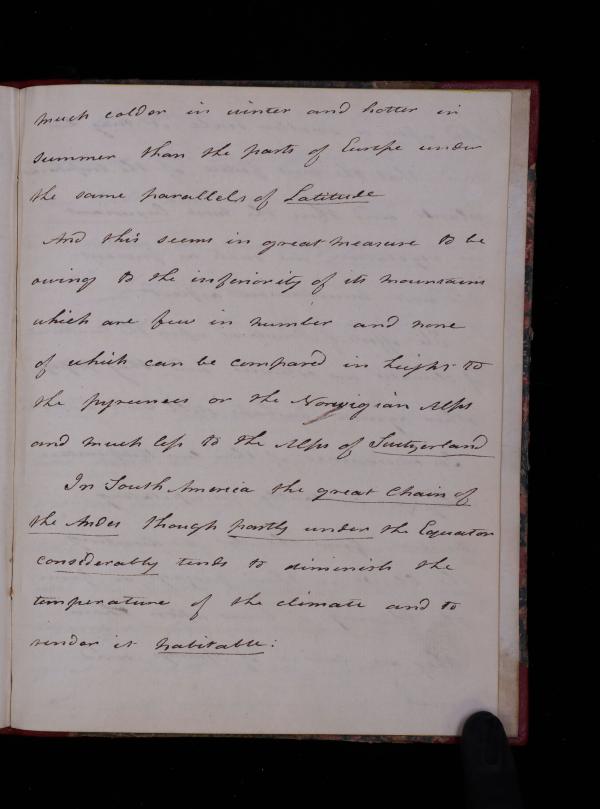 much colder in winter and hotter in
summer than the parts of Europe under
the same parallels of Latitude
And this seems in great measure to be
owing to the inferiority of its mountains
which are few in number and none
of which can be compared in height to
the pyrenees or the Norwigian Alps
and much less to the Alps of Switzerland
In South America the great Chain of
the Andes though partly under the Equator
considerably tends to diminish the
temperature of the climate and to
render it habitable: